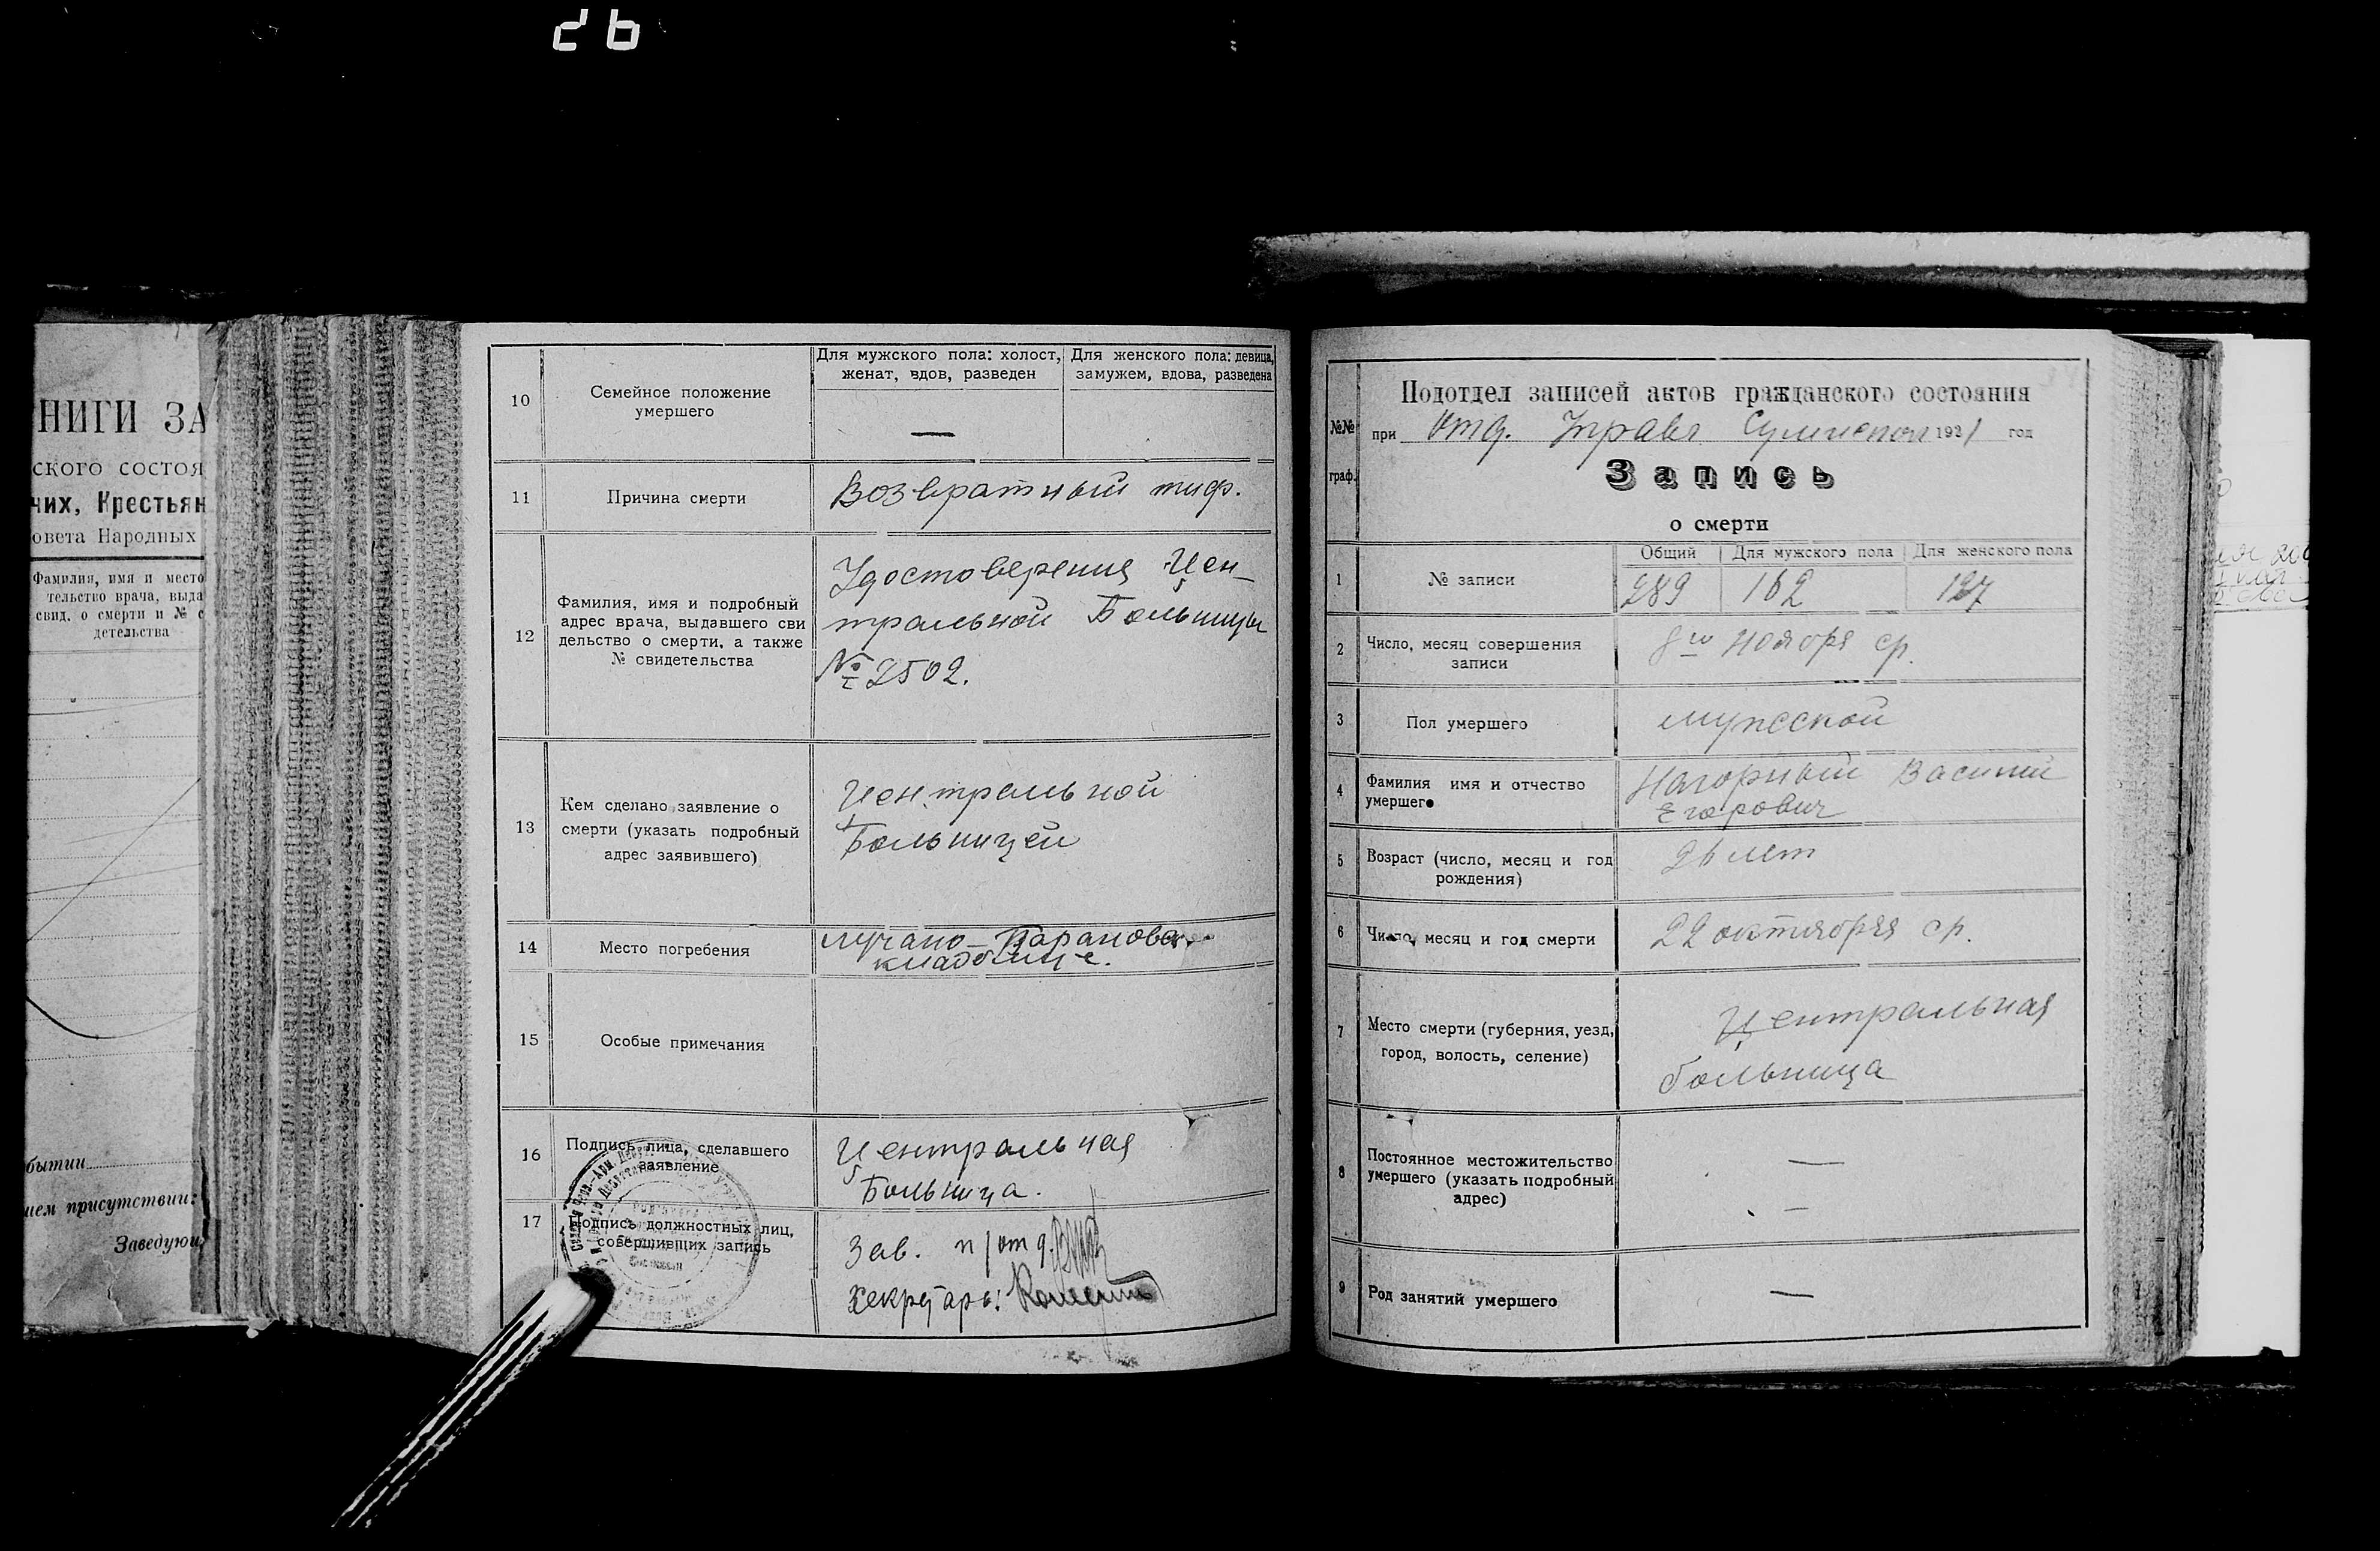 26
НИГИ ЗА
ского состоя
чих, Крестьян
овета Народных
Фамилия, имя и место
тельство врача, выда
свид. о смерти и № с
детельства
бытии
ием присутствии:
Заведующ
10
Семейное положение
умершего
Для мужского пола: холост,
женат, вдов, разведен
Для женского пола: девица,
замужем, вдова, разведена
—
11
Причина смерти
Возвратный тиф.
12
Фамилия, имя и подробный
адрес врача, выдавшего сви
дельство о смерти, а также
№ свидетельства
Удостоверения Цен-
тральной Больницы
№ 2502.
13
Кем сделано заявление о
смерти (указать подробный
адрес заявившего)
Центральной
Больницей
14
Место погребения
кладбище.
15
Особые примечания
16
Подпись лица, сделавшего
заявление
Центральная
Больница.
17
Подпись должностных лиц,
совершивщих запись
Зав. п/отд.
Секретарь:
Подотдел записей актов гражданского состояния
№№
граф.
при Отд. Управл 1921 год
Запись
о смерти
1
№ записи
Общий
Для мужского пола
Для женского пола
289
162
127
2
Число, месяц совершения
записи
8го ноября ср.
3
Пол умершего
мужской
4
Фамилия имя и отчество
умершего
Нагорный Василий
Егорович
5
Возраст (число, месяц и год
рождения)
26 лет
6
Число, месяц и год смерти
22 октября ср.
7
Место смерти (губерния, уезд,
город, волость, селение)
Центральная
больница
8
Постоянное местожительство
умершего (указать подробный
адрес)
—
—
9
Род занятий умершего
—